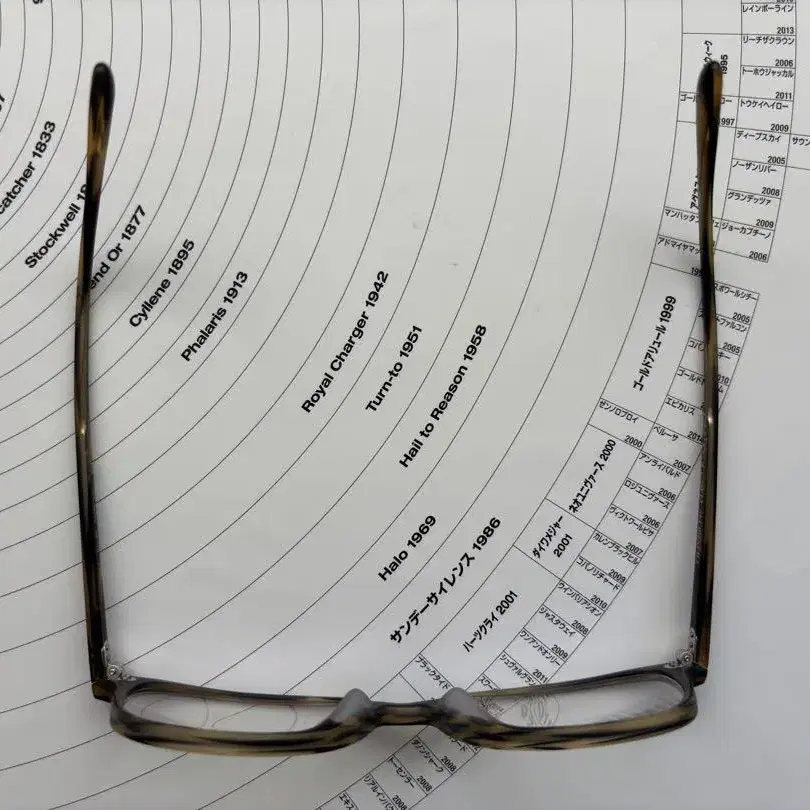 catcher 1833
Stockwell 18
end Or 1877
Cyllene 1895
Phalaris 1913
Royal Charger 1942
Turn-to 1951
Hail to Reason 1958
Halo 1969
サンデーサイレンス 1986
ハーツクライ 2001
ダイワメジャー
2001
ネオユニヴァース 2000
ゼンノロブロイ
2000
ゴールドアリュール 1999
レインボーライン
2013
リーチザクラウン
2006
トーホウジャッカル
2011
トウケイヘイロー
2009
ディープスカイ
2005
サウン
ノーザンリバー
2008
グランデッツァ
2009
ジョーカプチーノ
2006
マンハッタン
アドマイヤマッ
ウィーク
1995
ゴール
1997
スボワールシチー
2005
トファルコン
2005
コパノ
キー
2010
ゴールド
エピカリス
ベルーサ
2007
アンライバルド
2006
ロジユニヴァース
2006
ヴィクトワールピサ
2007
カレンブラックヒル
2009
コパノリチャード
2010
ウインバリアシオン
2008
ジャスタウェイ
2009
ワンアンドオンリー
2011
シュヴァルグラン
ブラックタイド
トーセンラー
2008
リアルインパ
2008
エキス